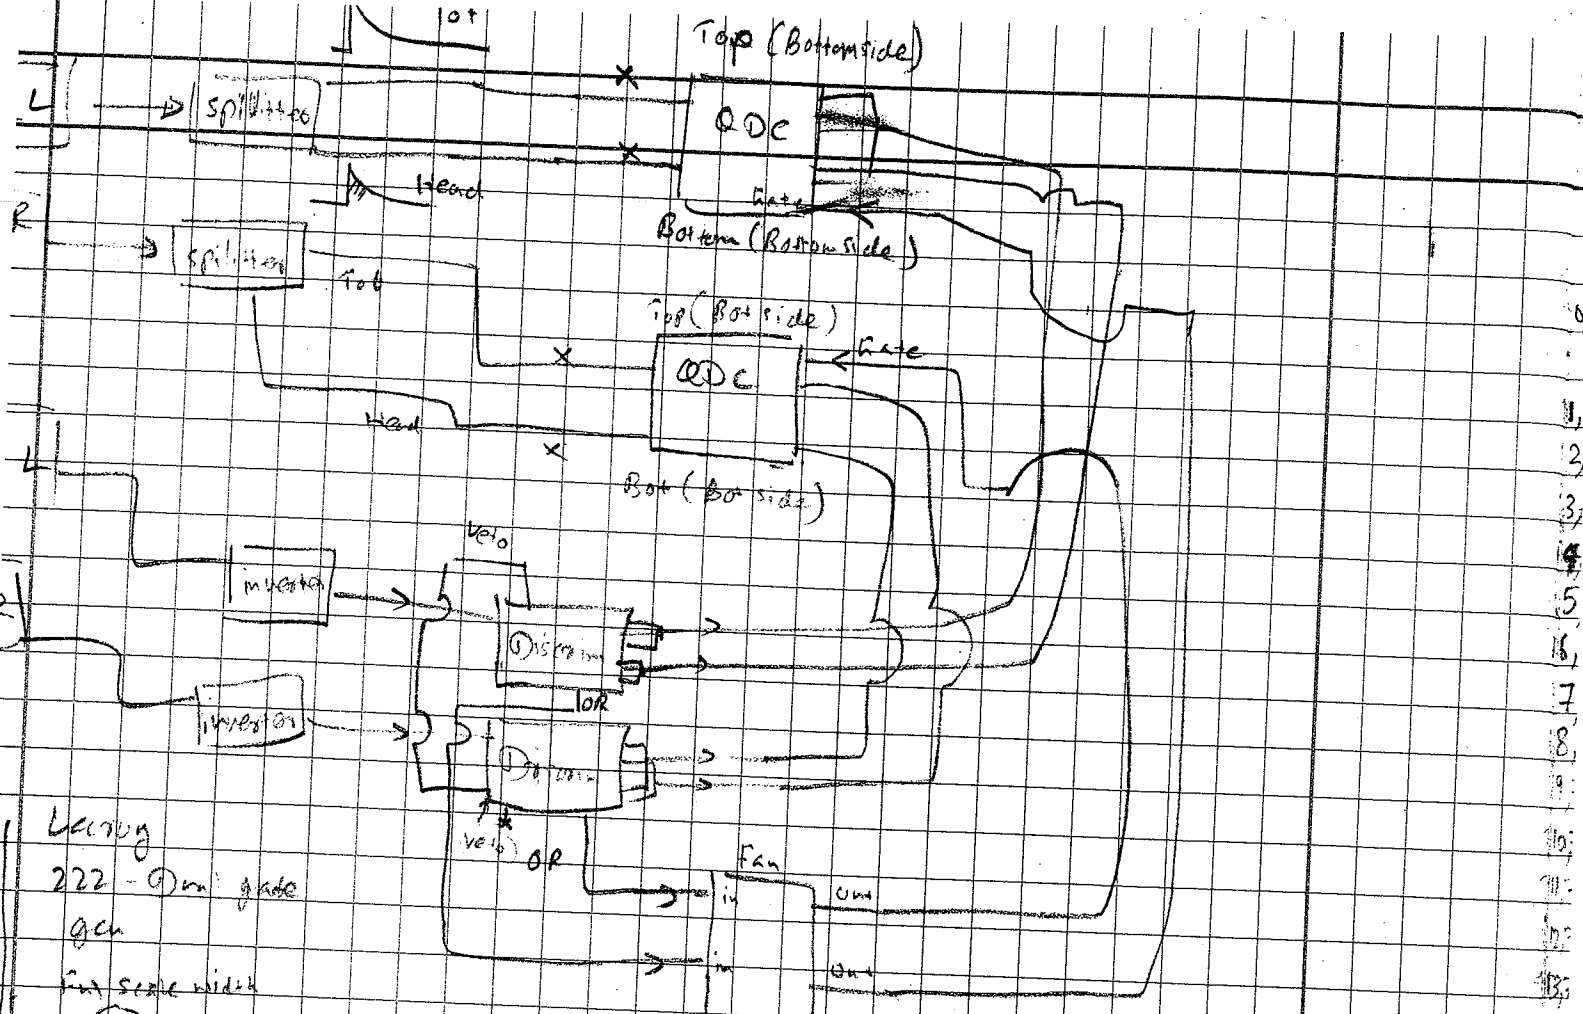 Tot
Top (Bottomside)
L
spilitter
QDC
Head
Gate
R
Bottom (Bottomside)
spilitter
Tot
Top (Bot side)
Gate
QDC
Head
L
Bot (Bot side)
Veto
inverter
Discrim
OR
inverter
Veto
OR
Fan
in
Out
in
Out
Lecroy
222 - Dual gate
gen
Full scale width
1,
2,
3,
4,
5
6,
7
8,
9,
10,
11,
12,
13,